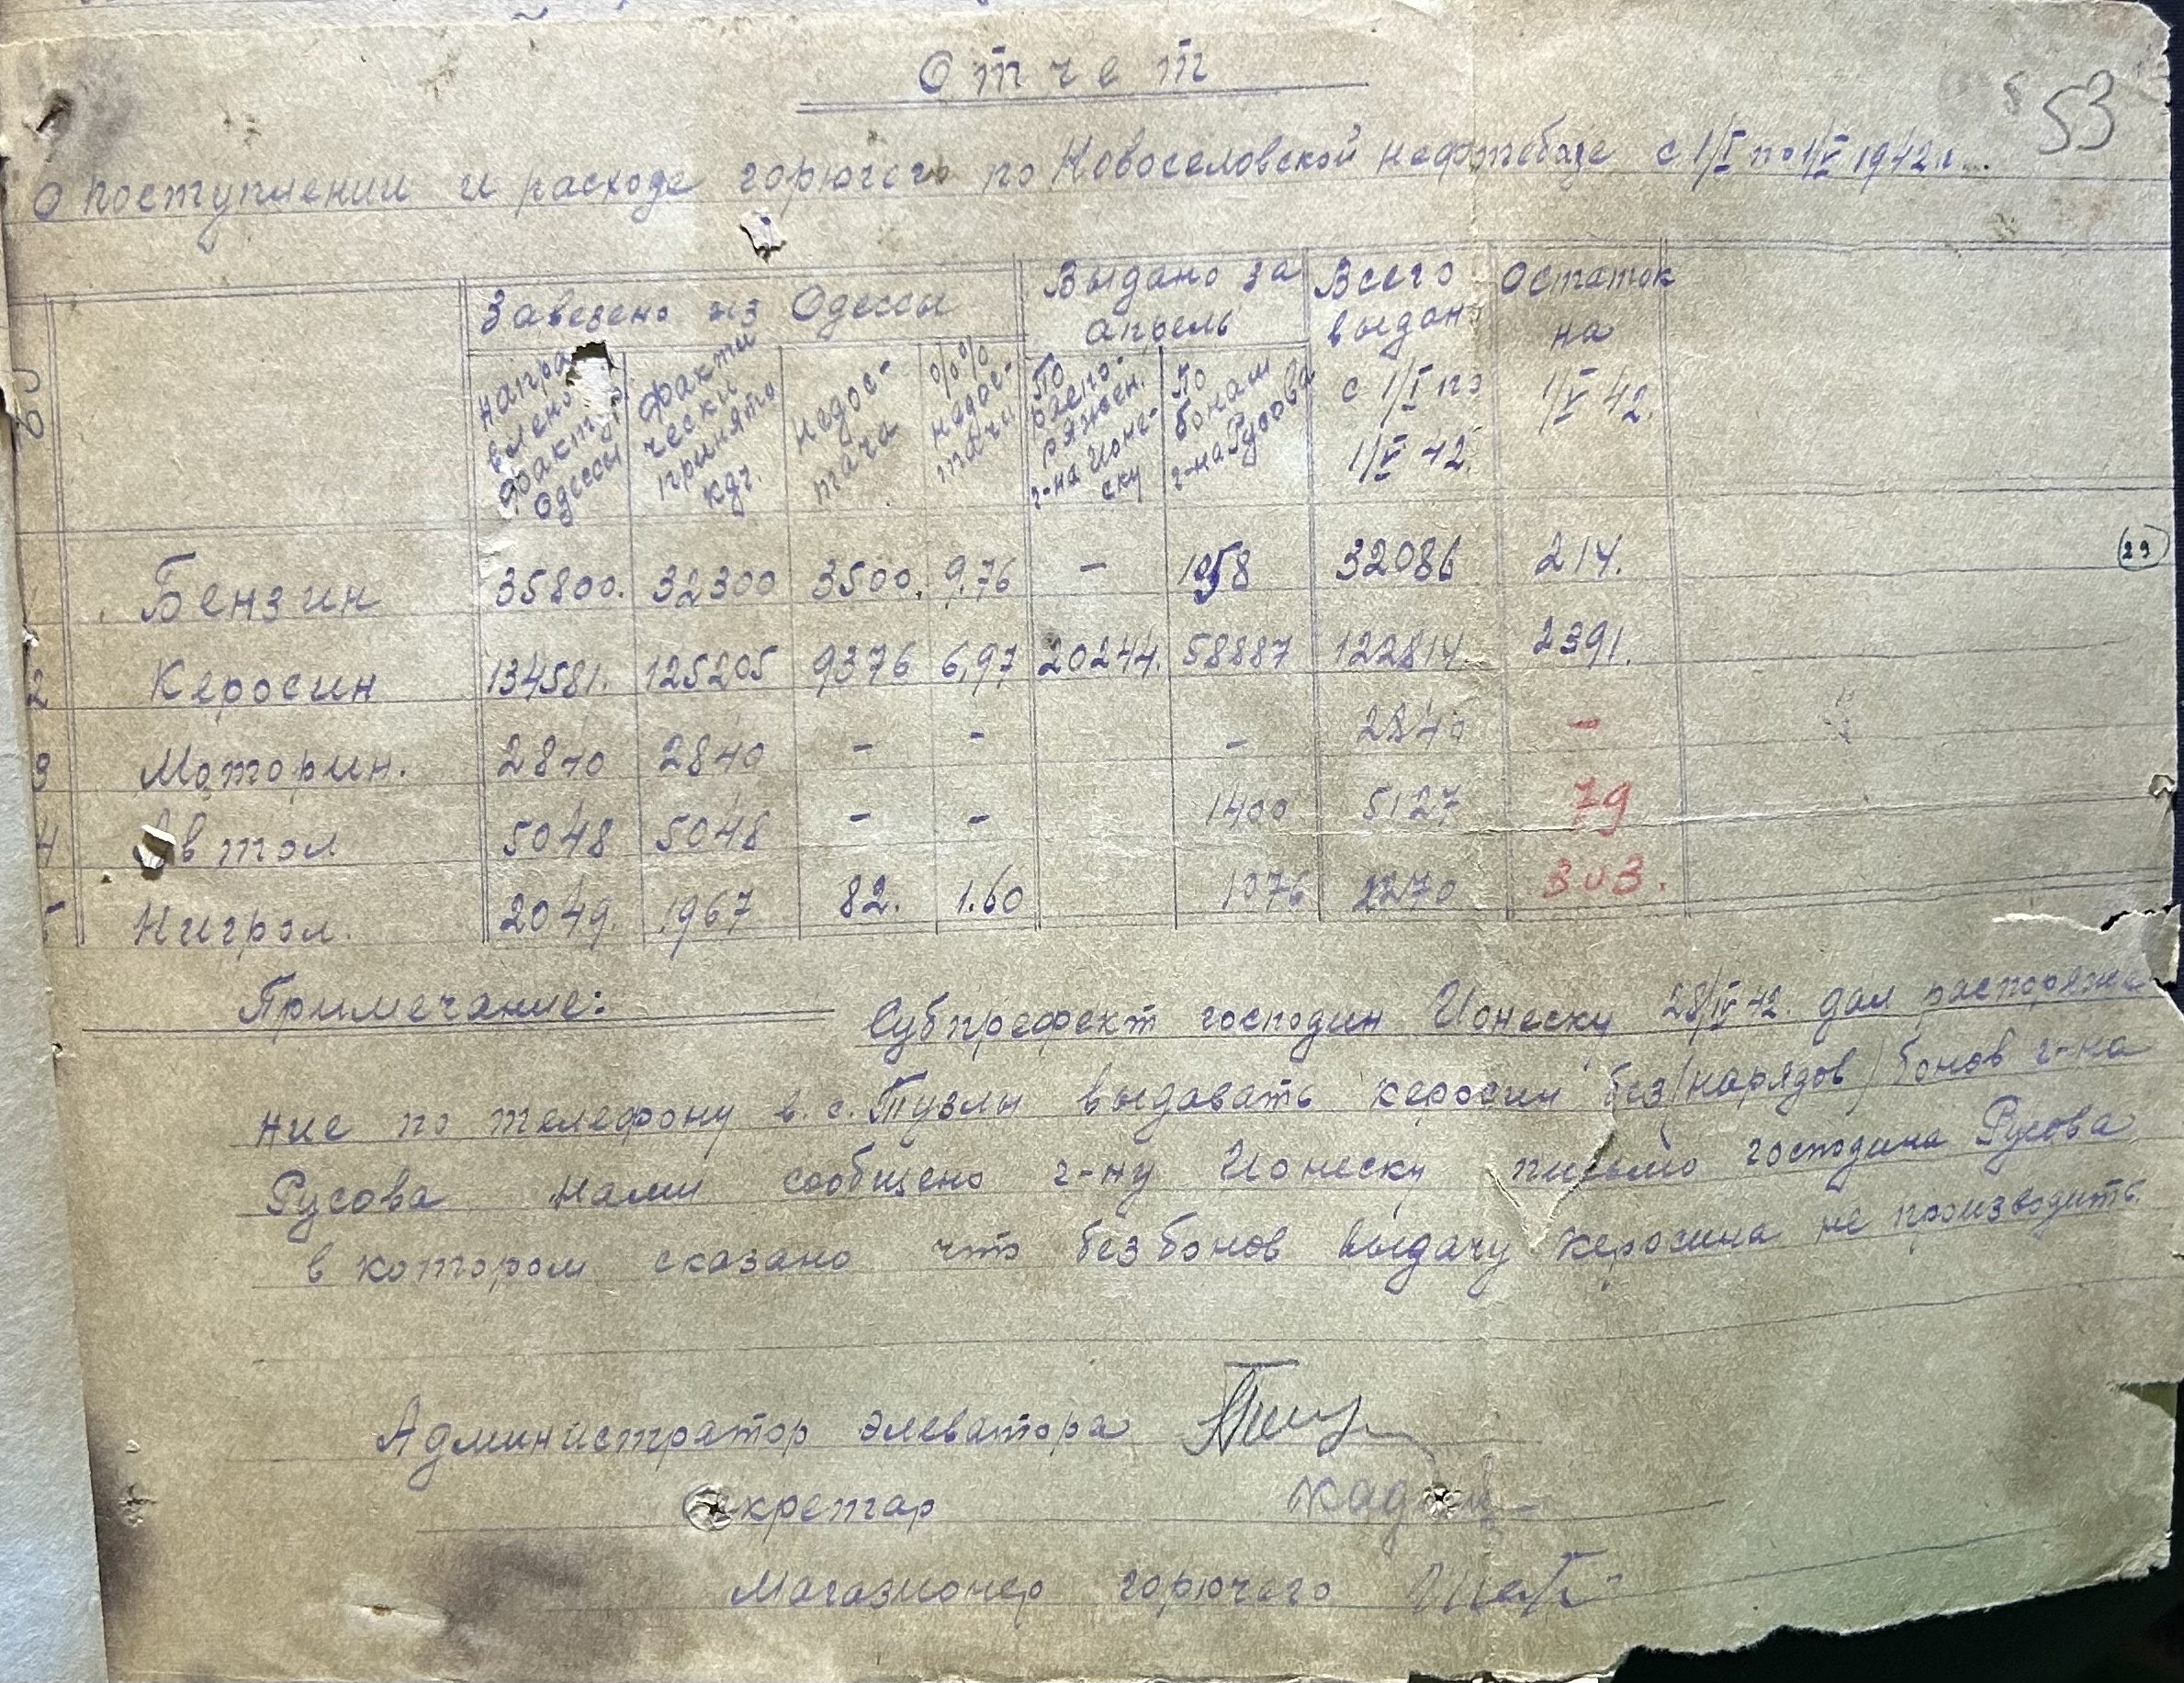 Отчет
53
о поступлении и расходе горючего по Новоселовской нефтебазе с 1/I по 1/V 1942 г.
Завезено из Одессы
Выдано за апрель
Всего выдано с 1/I по 1/V 42.
Остаток на 1/V 42.
направлено фактур. Одессы
фактически принято кдг.
недостача
%% недостачи
По распоряжен. г-на Ионеску
По бонам г-на Русова
1 Бензин 35800. 32300 3500. 9,76 – 1058 32086 214.
29
2 Керосин 134581. 125205 9376 6,97 20244. 58887 122814. 2391.
3 Моторин. 2840 2840 – – – 2840 –
4 Автол 5048 5048 – – 1400 5127 79
5 Нигрол. 2049. 1967 82. 1.60 1076 2270 303.
Примечание: Субпрефект господин Ионеску 28/IV 42. дал распоряже
ние по телефону в. с. Тузлы выдавать керосин без /нарядов/ бонов г-на
Русова Нами сообщено г-ну Ионеску письмо господина Русова
в котором сказано что без бонов выдачу керосина не производить.
Администратор элеватора
Секретар
Магазионер горючего